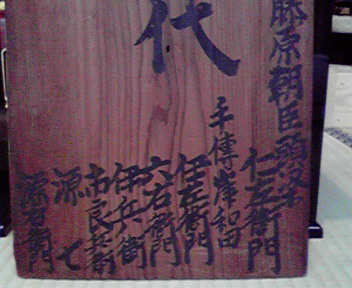 藤原朝臣頭梁
仁左衛門
代
手傳岸和田
任左衛門
六右衛門
伊兵衛
市良兵衛
源七
源右衛門